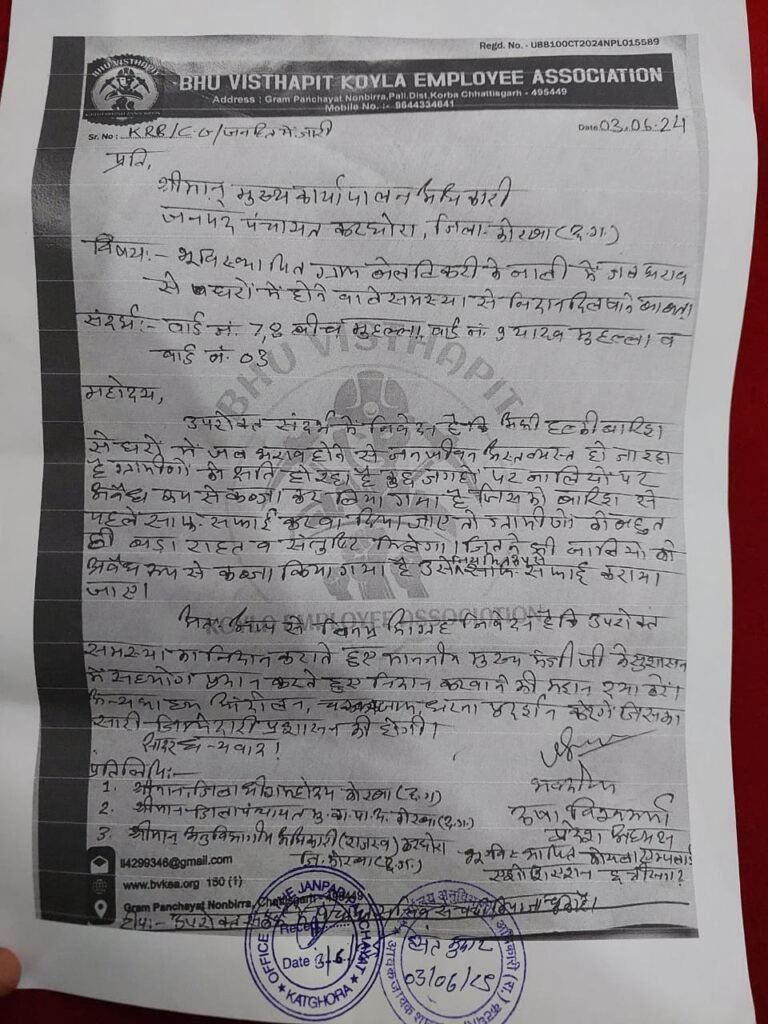 Regd. No. - U88100CT2024NPL015589
BHU VISTHAPIT KOYLA EMPLOYEE ASSOCIATION
Address : Gram Panchayat Nonbirra,Pali.Dist.Korba Chhattisgarh - 495449
Mobile No. :- 9644334641
Sr. No : KRB/C.G/जनहित में जारी
Date 03.06.24
प्रति,
श्रीमान् मुख्य कार्यापालन अधिकारी
जनपद पंचायत कटघोरा, जिला- कोरबा (छ.ग.)
विषय:- भूविस्थापित ग्राम बेलटिकरी के नाली में जल भराव
से घरों में होने वाले समस्या से निदान दिलवाने बाबत।
संदर्भ:- वार्ड नं. 7,8 बीच मुहल्ला, वार्ड नं. 9 यादव मुहल्ला व
वार्ड नं. 03
महोदय,
उपरोक्त संदर्भ में निवेदन है कि अभी हल्की बारिश
से घरों में जल भराव होने से जनजीवन अस्त व्यस्त हो जा रहा
है ग्रामीणों को क्षति हो रहा है कुछ जगहों पर नालियों पर
अवैध रूप से कब्जा कर लिया गया है जिसको बारिश से
पहले साफ सफाई करवा दिया जाए तो ग्रामीणों को बहुत
ही बड़ा राहत व संतुष्टि मिलेगा। जितने भी नालियों को
अवैध रूप से कब्जा किया गया है उसे साफ सफाई कराया
जाए।
अतः आप से विनम्र आग्रह निवेदन है कि उपरोक्त
समस्या का निदान कराते हुए माननीय मुख्य मंत्री जी के सुशासन
में सहयोग प्रदान करते हुए निदान करवाने की महान दया करें।
अन्यथा हम आंदोलन, चक्काजाम धरना प्रदर्शन करेंगे जिसका
सारी जिम्मेदारी प्रशासन की होगी।
सादर धन्यवाद!
प्रतिलिपि:-
1. श्रीमान् जिलाधीश महोदय कोरबा (छ.ग)
2. श्रीमान जिला पंचायत मु.का.पा.अ. कोरबा (छ.ग.)
3. श्रीमान् अनुविभागीय अधिकारी (राजस्व) कटघोरा
जि. कोरबा (छ.ग.)
भवदीय
प्रदेश अध्यक्ष
भूविस्थापित कोयला एम्पलाई
एसोसिएशन छत्तीसगढ़
ll4299346@gmail.com
www.bvkea.org 150 (1)
Gram Panchayat Nonbirra, Chattisgarh - 495449
OFFICE OF THE JANPAD PANCHAYAT
Date 3/6
KATGHORA
03/06/25